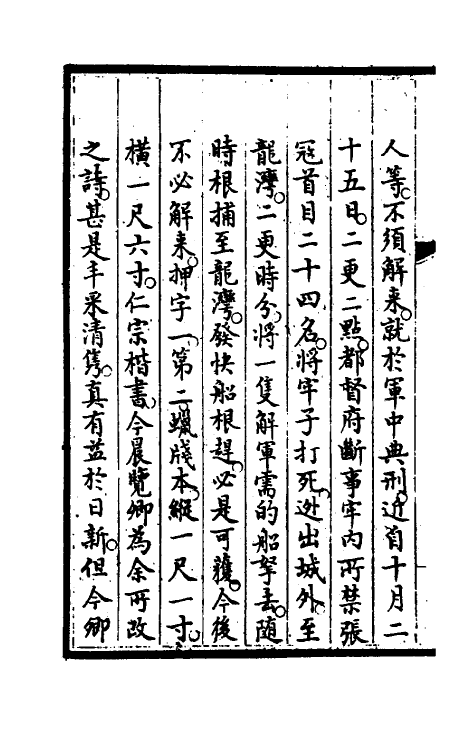 人等。不須解来。就於軍中典刑。近首十月二
十五日。二更二點。都督府斷事牢内所禁張
冦首目二十四名。將牢子打死迯出城外。至
龍灣。二更時分。將一隻解軍需的船拏去。隨
時根捕至龍灣。發快船根趕。必是可獲。今後
不必解来。押字一。第二蠟牋本。縱一尺一寸。
横一尺六寸。仁宗楷書。今晨覽卿為余所改
之詩。甚是丰采清雋。真有益於日新。但今卿